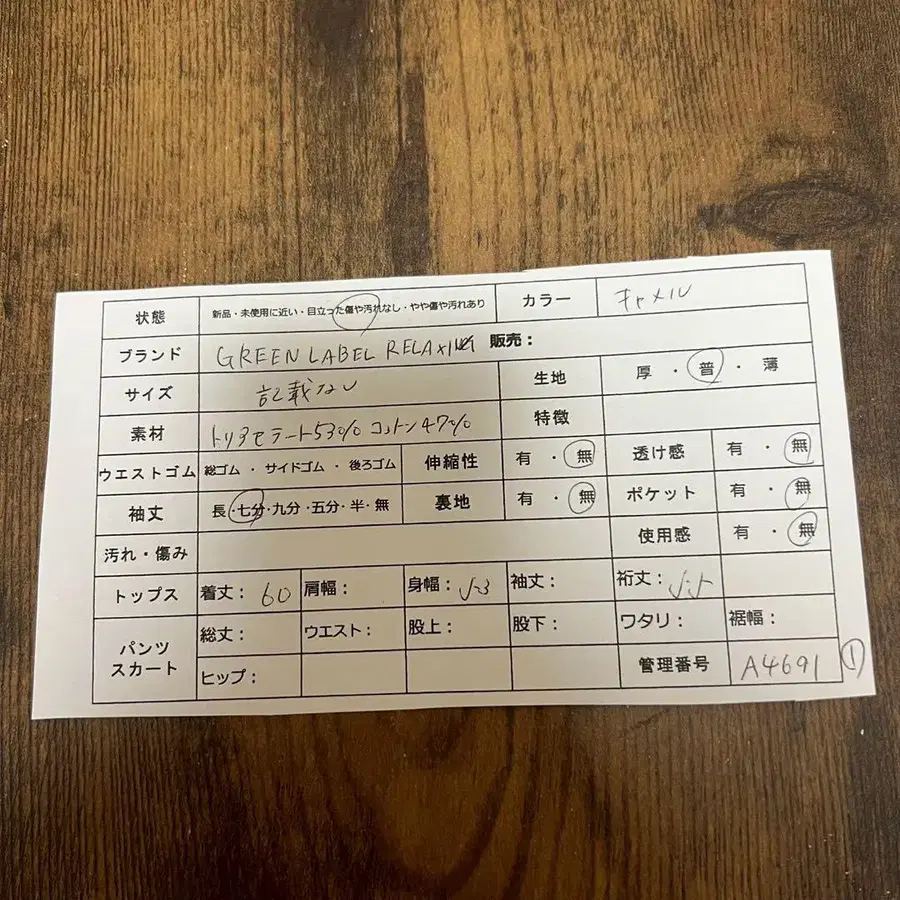 状態 新品・未使用に近い・目立った傷や汚れなし・やや傷や汚れあり カラー キャメル
ブランド GREEN LABEL RELAXING 販売：
サイズ 記載なし 生地 厚・普・薄
素材 トリアセテート53% コットン47% 特徴
ウエストゴム 総ゴム・サイドゴム・後ろゴム 伸縮性 有・無 透け感 有・無
袖丈 長・七分・九分・五分・半・無 裏地 有・無 ポケット 有・無
汚れ・傷み 使用感 有・無
トップス 着丈：60 肩幅： 身幅：53 袖丈： 裄丈：
パンツ スカート 総丈： ウエスト： 股上： 股下： ワタリ： 裾幅：
ヒップ： 管理番号 A4691 ①